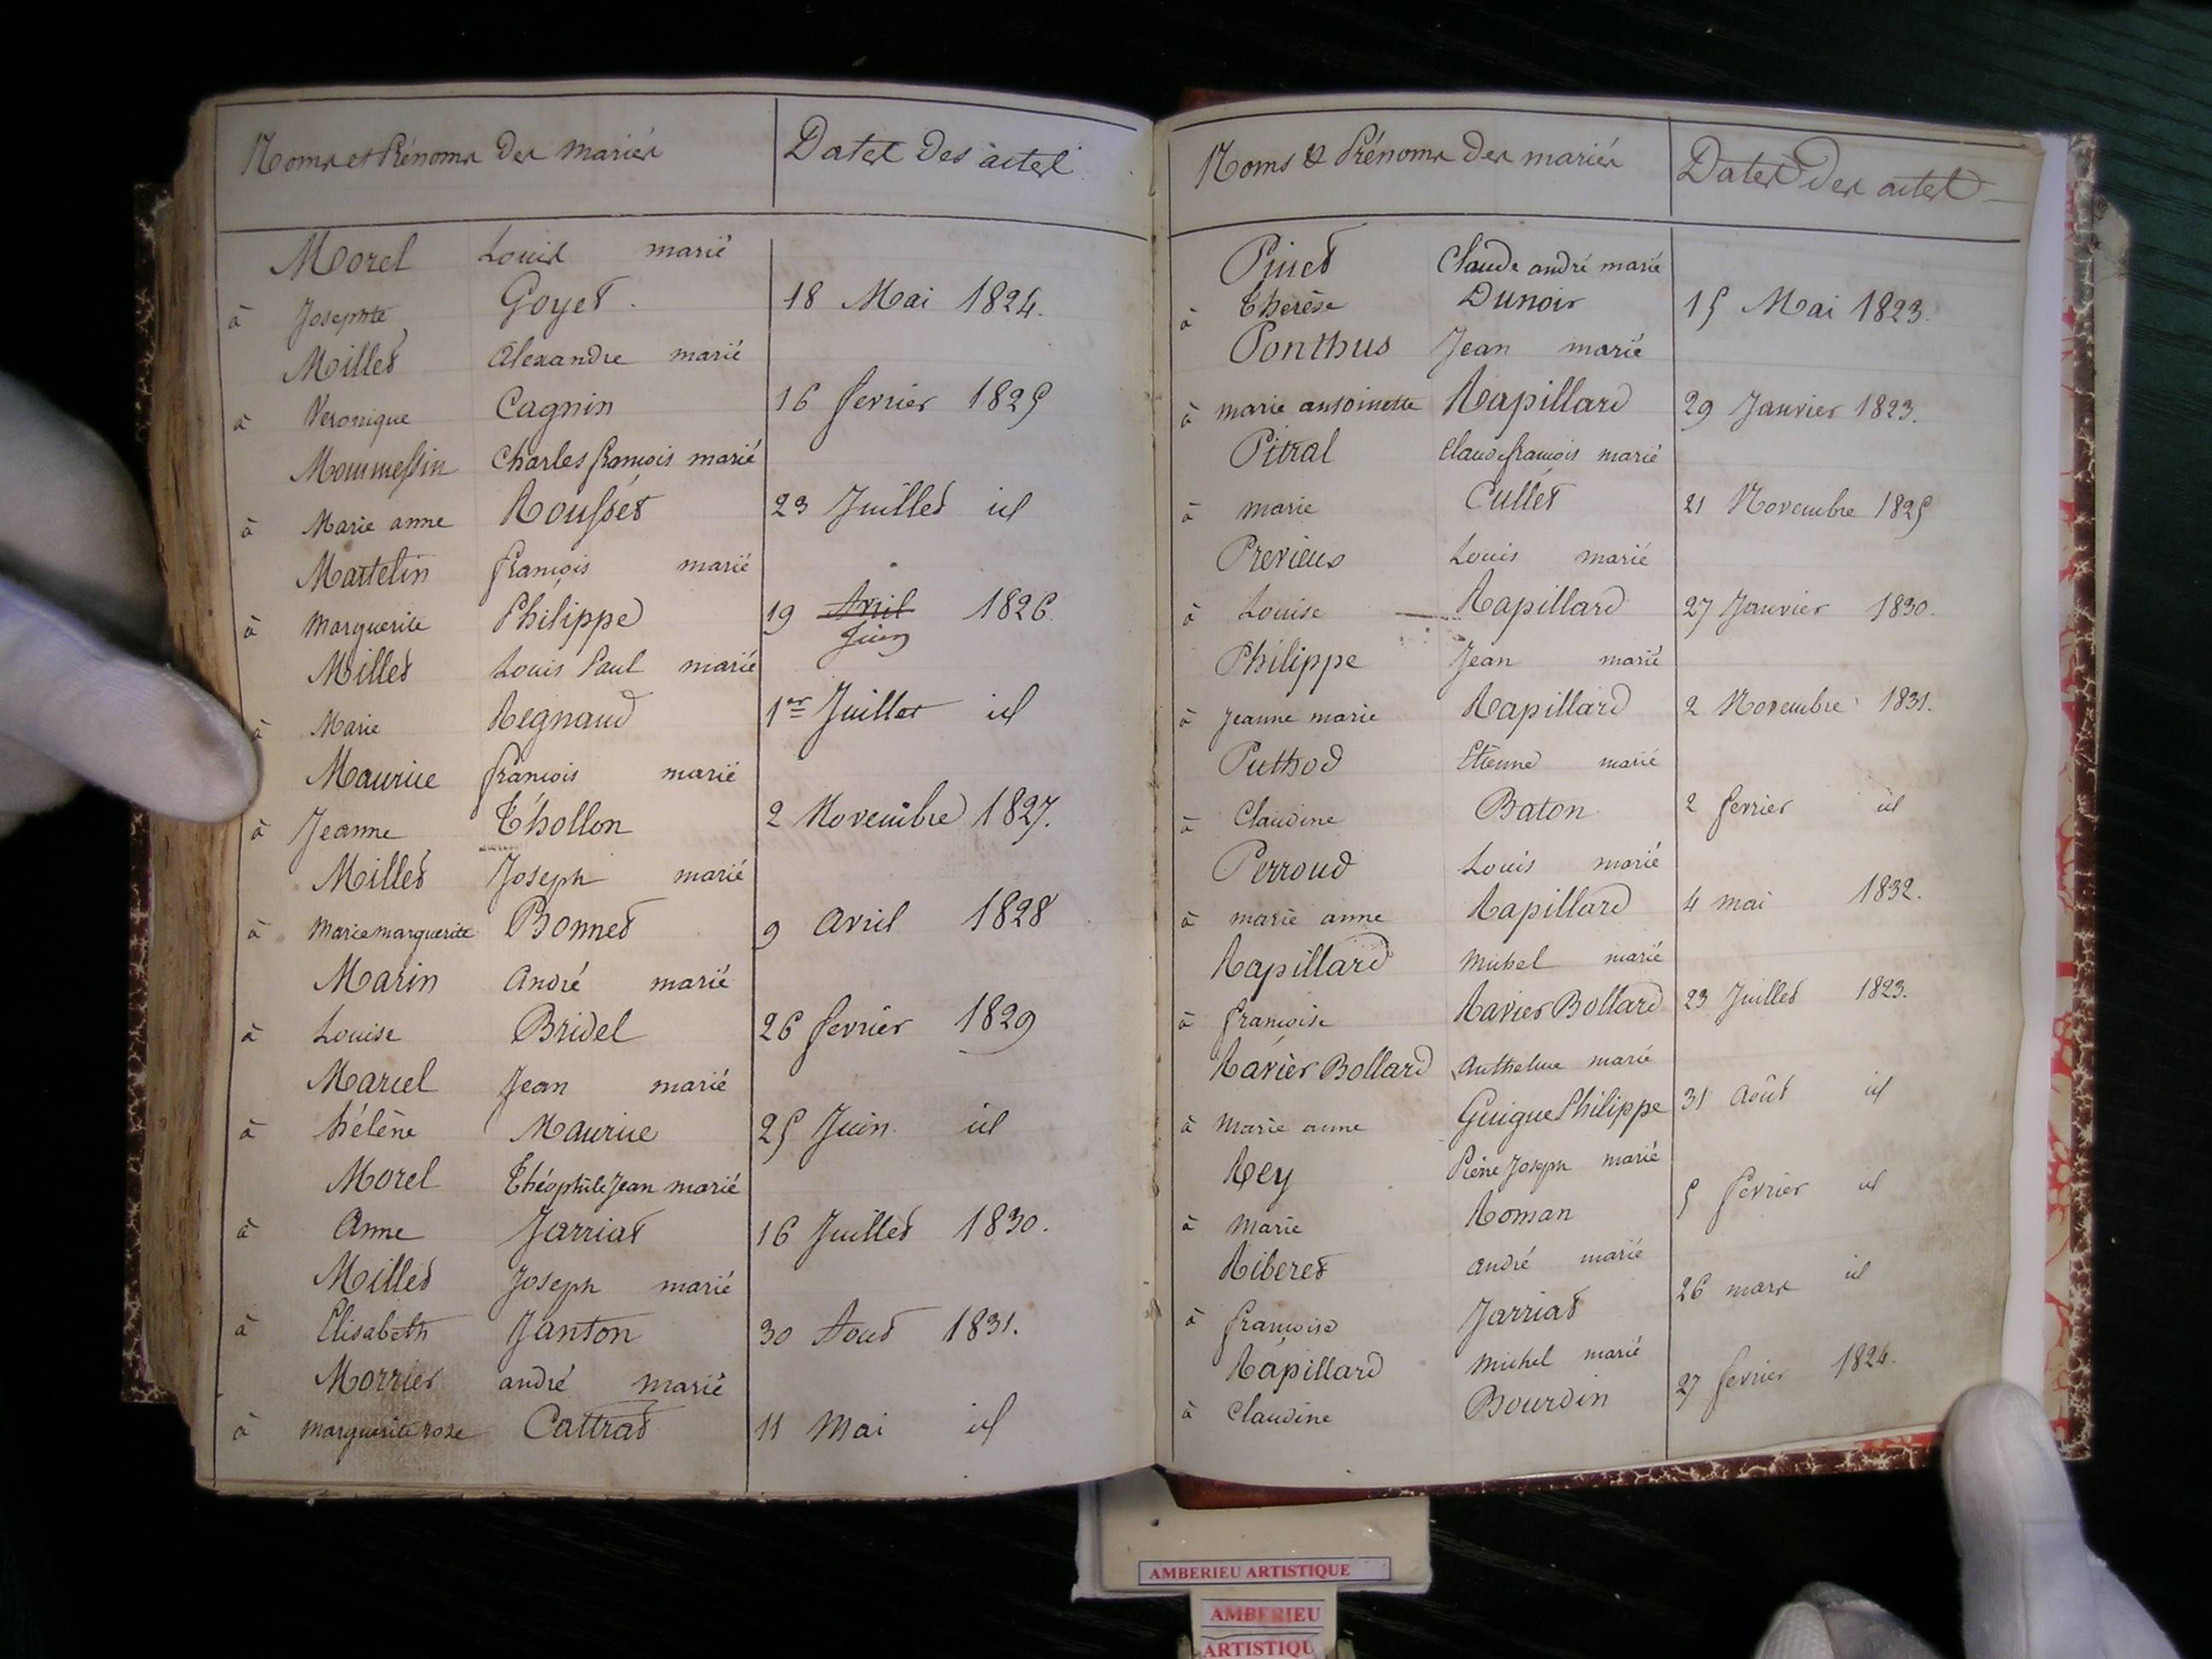 Noms et Prénoms des mariés
Dates des actes
Morel Louis marié
à Josephte Goyet. 18 Mai 1824.
Millet Alexandre marié
à Veronique Cagnin 16 fevrier 1825
Mommessin Charles françois marié
à Marie anne Rousset 23 Juillet id
Martelin françois marié
à Marguerite Philippe 19 Avril 1826.
Juin
Millet Louis Paul marié
à Marie Regnaud 1er Juillet id
Maurice françois marié
à Jeanne Thollon 2 Novembre 1827.
Millet Joseph marié
à Marie marguerite Bonnet 9 Avril 1828
Marin André marié
à Louise Bridel 26 fevrier 1829
Marcel Jean marié
à hélène Maurice 25 Juin id
Morel Théophile Jean marié
à Anne Jarriat 16 Juillet 1830.
Millet Joseph marié
à Elisabeth Janton 30 Aout 1831.
Morrier andré marié
à marguerite rose Cattrat 11 Mai id
Noms & Prénoms des mariés
Dates des actes
Pinet Claude andré marié
à Therèse Dunoir 15 Mai 1823.
Ponthus Jean marié
à marie antoinette Rapillard 29 Janvier 1823.
Pitral Claude françois marié
à marie Cullet 21 Novembre 1825
Previeux Louis marié
à Louise Rapillard 27 Janvier 1830.
Philippe Jean marié
à Jeanne marie Rapillard 2 Novembre 1831.
Puthod Etienne marié
à Claudine Baton 2 fevrier id
Perroud Louis marié
à marie anne Rapillard 4 mai 1832.
Rapillard Michel marié
à françoise Ravier Bollard 23 Juillet 1823.
Ravier Bollard Anthelme marié
à Marie anne Guigue Philippe 31 Août id
Rey Pierre Joseph marié
à Marie Roman 5 fevrier id
Riberet andré marié
à françoise Jarriat 26 mars id
Rapillard Michel marié
à Claudine Bourdin 27 fevrier 1824.
AMBERIEU ARTISTIQUE
AMBERIEU
ARTISTIQU